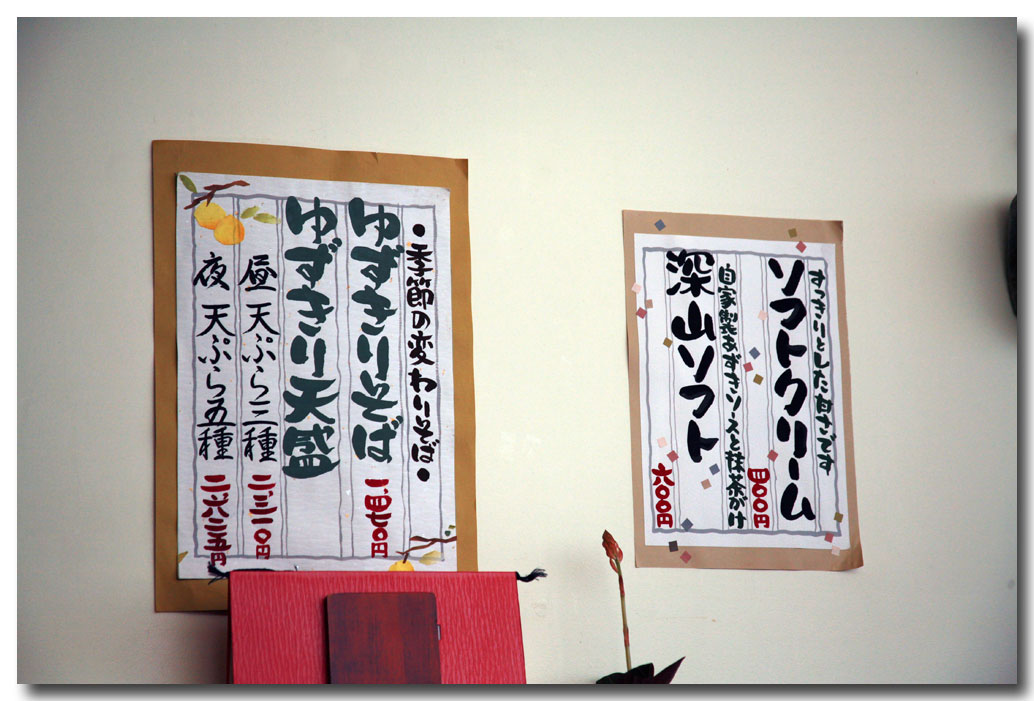 ・季節の変わりそば・
ゆずきりそば
一、四七〇円
ゆずきり天盛
昼 天ぷら三種 二、三一〇円
夜 天ぷら五種 二、六二五円
すっきりとした甘さです
ソフトクリーム
四〇〇円
自家製あずきソースと抹茶がけ
深山ソフト
六〇〇円